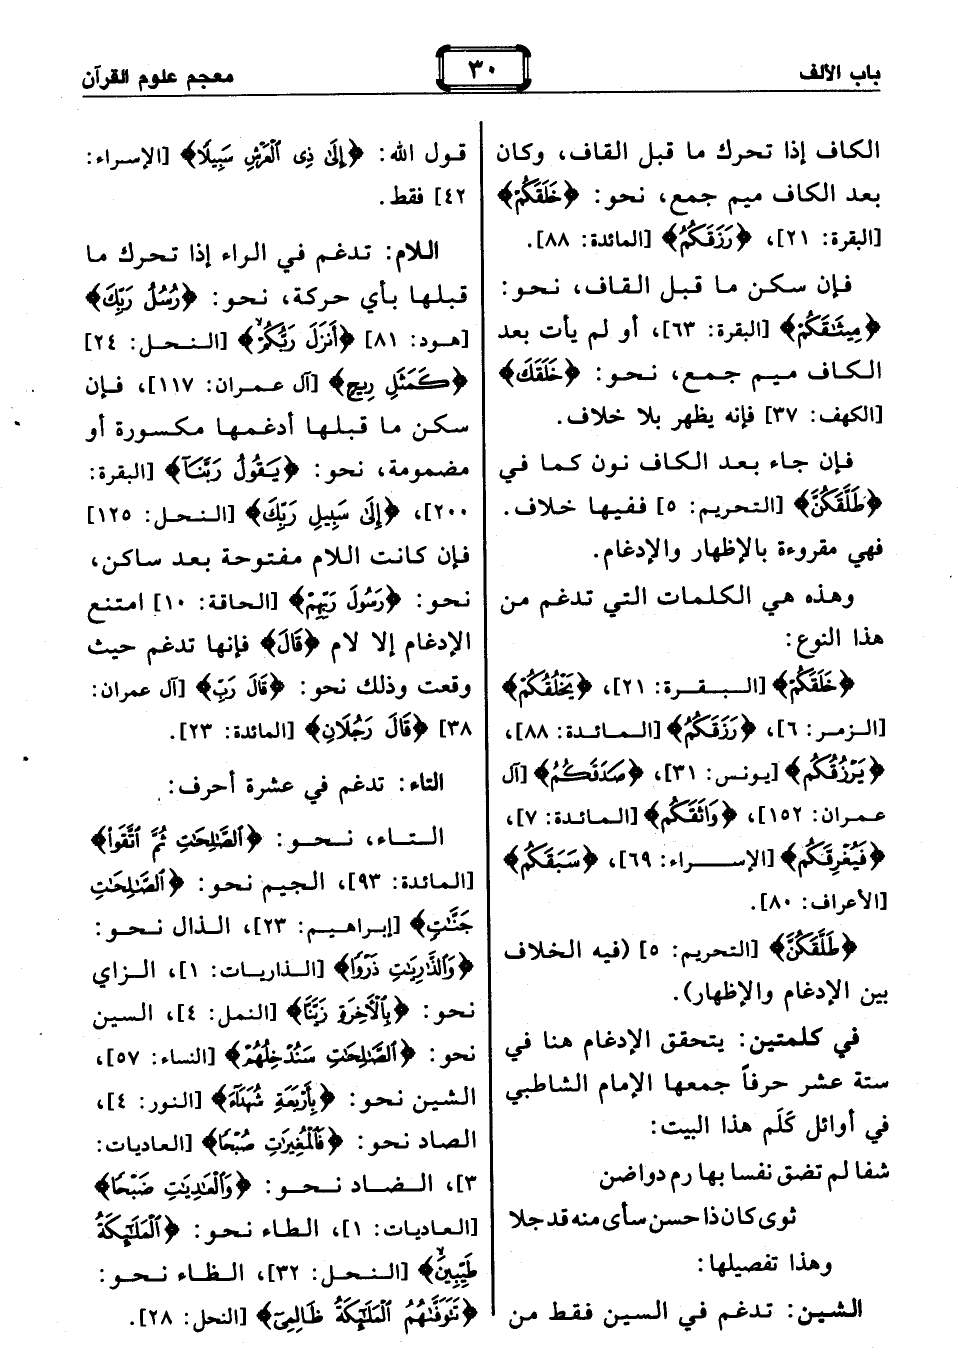 باب الألف
٣٠
معجم علوم القرآن
الكاف إذا تحرك ما قبل القاف، وكان
بعد الكاف ميم جمع، نحو: ﴿خَلَقَكُمْ﴾
[البقرة: ٢١]، ﴿رَزَقَكُمُ﴾ [المائدة: ٨٨].
فإن سكن ما قبل القاف، نحو:
﴿مِيثَٰقَكُمْ﴾ [البقرة: ٦٣]، أو لم يأت بعد
الكاف ميم جمع، نحو: ﴿خَلَقَكَ﴾
[الكهف: ٣٧] فإنه يظهر بلا خلاف.
فإن جاء بعد الكاف نون كما في
﴿طَلَّقَكُنَّ﴾ [التحريم: ٥] ففيها خلاف.
فهي مقروءة بالإظهار والإدغام.
وهذه هي الكلمات التي تدغم من
هذا النوع:
﴿خَلَقَكُمْ﴾ [البقرة: ٢١]، ﴿يَخْلُقُكُمْ﴾
[الزمر: ٦]، ﴿رَزَقَكُمُ﴾ [المائدة: ٨٨]،
﴿يَرْزُقُكُم﴾ [يونس: ٣١]، ﴿صَدَقَكُمُ﴾ [آل
عمران: ١٥٢]، ﴿وَاثَقَكُم﴾ [المائدة: ٧]،
﴿فَيُغْرِقَكُم﴾ [الإسراء: ٦٩]، ﴿سَبَقَكُم﴾
[الأعراف: ٨٠].
﴿طَلَّقَكُنَّ﴾ [التحريم: ٥] (فيه الخلاف
بين الإدغام والإظهار).
في كلمتين: يتحقق الإدغام هنا في
ستة عشر حرفاً جمعها الإمام الشاطبي
في أوائل كَلَم هذا البيت:
شفا لم تضق نفسا بها رم دواضن
ثوى كان ذا حسن سأى منه قد جلا
وهذا تفصيلها:
الشين: تدغم في السين فقط من
قول الله: ﴿إِلَىٰ ذِى ٱلْعَرْشِ سَبِيلًا﴾ [الإسراء:
٤٢] فقط.
اللام: تدغم في الراء إذا تحرك ما
قبلها بأي حركة، نحو: ﴿رُسُلُ رَبِّكَ﴾
[هود: ٨١] ﴿أَنزَلَ رَبُّكُمْ ۙ﴾ [النحل: ٢٤]
﴿كَمَثَلِ رِيحٍ﴾ [آل عمران: ١١٧]، فإن
سكن ما قبلها أدغمها مكسورة أو
مضمومة، نحو: ﴿يَقُولُ رَبَّنَآ﴾ [البقرة:
٢٠٠]، ﴿إِلَىٰ سَبِيلِ رَبِّكَ﴾ [النحل: ١٢٥]
فإن كانت اللام مفتوحة بعد ساكن،
نحو: ﴿رَسُولَ رَبِّهِمْ﴾ [الحاقة: ١٠] امتنع
الإدغام إلا لام ﴿قَالَ﴾ فإنها تدغم حيث
وقعت وذلك نحو: ﴿قَالَ رَبِّ﴾ [آل عمران:
٣٨] ﴿قَالَ رَجُلَانِ﴾ [المائدة: ٢٣].
التاء: تدغم في عشرة أحرف:
التاء، نحو: ﴿ٱلصَّٰلِحَٰتِ ثُمَّ ٱتَّقَوا۟﴾
[المائدة: ٩٣]، الجيم نحو: ﴿ٱلصَّٰلِحَٰتِ
جَنَّٰتٍ﴾ [إبراهيم: ٢٣]، الذال نحو:
﴿وَٱلذَّٰرِيَٰتِ ذَرْوًا﴾ [الذاريات: ١]، الزاي
نحو: ﴿بِٱلْأَخِرَةِ زَيَّنَّا﴾ [النمل: ٤]، السين
نحو: ﴿ٱلصَّٰلِحَٰتِ سَنُدْخِلُهُمْ﴾ [النساء: ٥٧]،
الشين نحو: ﴿بِأَرْبَعَةِ شُهَدَآءَ﴾ [النور: ٤]،
الصاد نحو: ﴿فَٱلْمُغِيرَٰتِ صُبْحًا﴾ [العاديات:
٣]، الضاد نحو: ﴿وَٱلْعَٰدِيَٰتِ ضَبْحًا﴾
[العاديات: ١]، الطاء نحو: ﴿ٱلْمَلَٰٓئِكَةُ
طَيِّبِينَ ۙ﴾ [النحل: ٣٢]، الظاء نحو:
﴿تَتَوَفَّىٰهُمُ ٱلْمَلَٰٓئِكَةُ ظَالِمِىٓ﴾ [النحل: ٢٨].